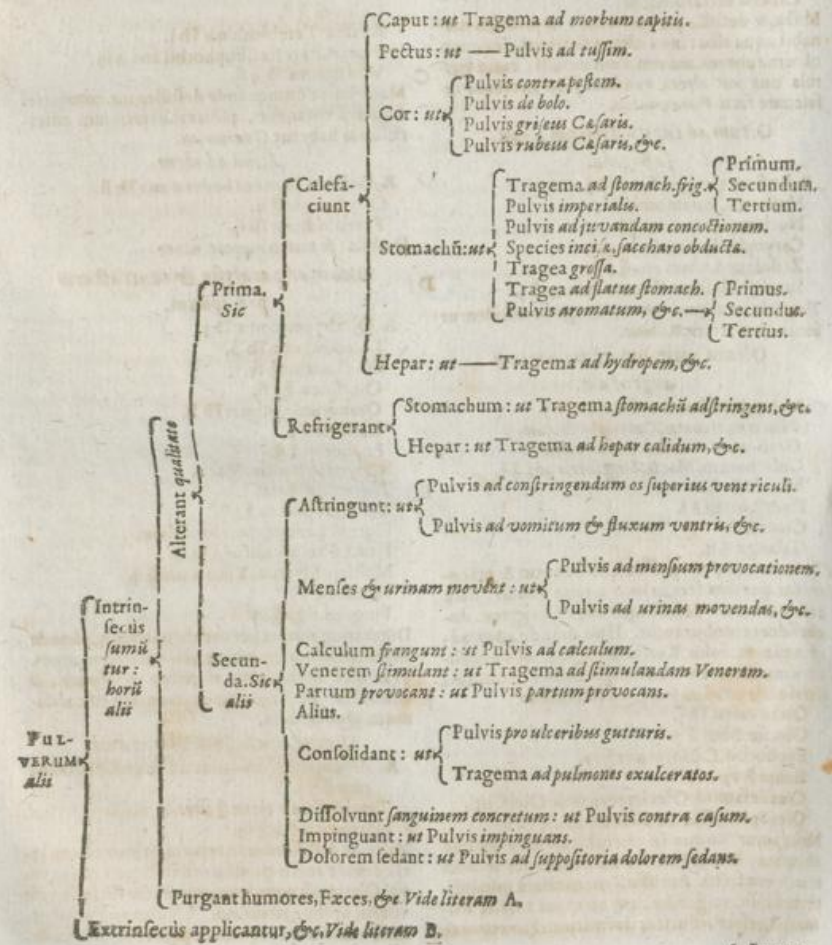 Caput : ut Tragema ad morbum capitis.
Pectus : ut — Pulvis ad tussim.
Cor : ut
Pulvis contra pestem.
Pulvis de bolo.
Pulvis griseus Cæsaris.
Pulvis rubeus Cæsaris, &c.
Calefa-
ciunt
Stomachū : ut
Tragema ad stomach. frig.
Primum.
Secundum.
Tertium.
Pulvis imperialis.
Pulvis adjuvandam concoctionem.
Species incisa, saccharo obducta.
Tragea grossa.
Tragea ad flatus stomach.
Pulvis aromatum, &c. —
Primus.
Secundus.
Tertius.
Prima.
Sic
Hepar : ut — Tragema ad hydropem, &c.
Refrigerant
Stomachum : ut Tragema stomachū adstringens, &c.
Hepar : ut Tragema ad hepar calidum, &c.
Alterant qualitate
Astringunt : ut
Pulvis ad constringendum os superius ventriculi.
Pulvis ad vomitum & fluxum ventris, &c.
Menses & urinam movent : ut
Pulvis ad mensium provocationem.
Pulvis ad urinas movendas, &c.
Intrin-
secùs
sumū
tur :
horū
alii
Secun-
da. Sic
alii
Calculum frangunt : ut Pulvis ad calculum.
Venerem stimulant : ut Tragema ad stimulandam Venerem.
Partum provocant : ut Pulvis partum provocans.
Alius.
Consolidant : ut
Pulvis pro ulceribus gutturis.
Tragema ad pulmones exulceratos.
PUL-
VERUM
alii
Dissolvunt sanguinem concretum : ut Pulvis contra casum.
Impinguant : ut Pulvis impinguans.
Dolorem sedant : ut Pulvis ad suppositoria dolorem sedans.
Purgant humores, Fæces, &c. Vide literam A.
Extrinsecùs applicantur, &c, Vide literam B.